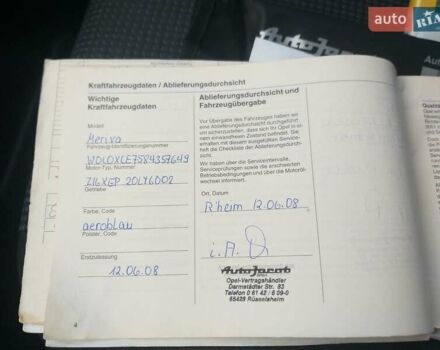 auto RIA
AutoJacob
Kraftfahrzeugdaten / Ablieferungsdurchsicht
Wichtige
Kraftfahrzeugdaten
Modell
Meriva
Fahrzeug-Identifizierungsnummer
W0L0XCE7584357649
Motor-Typ, Nummer
Z16XEP 20LY6D02
Getriebe
Farbe, Code
aeroblau
Polster, Code
Erstzulassung
12.06.08
4
Ablieferungsdurchsicht und
Fahrzeugübergabe
Vor Übergabe des Fahrzeuges haben wir
eine Ablieferungsdurchsicht durchgeführt,
um sicherzustellen, dass sich Ihr Opel in ei-
nem einwandfreien Zustand befindet. Sie
erhalten mit diesem ausgefüllten Service-
heft die Checkliste der Ablieferungsdurch-
sicht.
Wir haben über die Serviceintervalle,
Serviceprüfungen sowie die erschwerten
Betriebsbedingungen und über die Motoröl-
wechsel informiert.
Ort, Datum
R'heim 12.06.08
i.A.
AutoJacob
Opel-Vertragshändler
Darmstädter Str. 83
Telefon 0 61 42 / 5 09-0
65428 Rüsselsheim